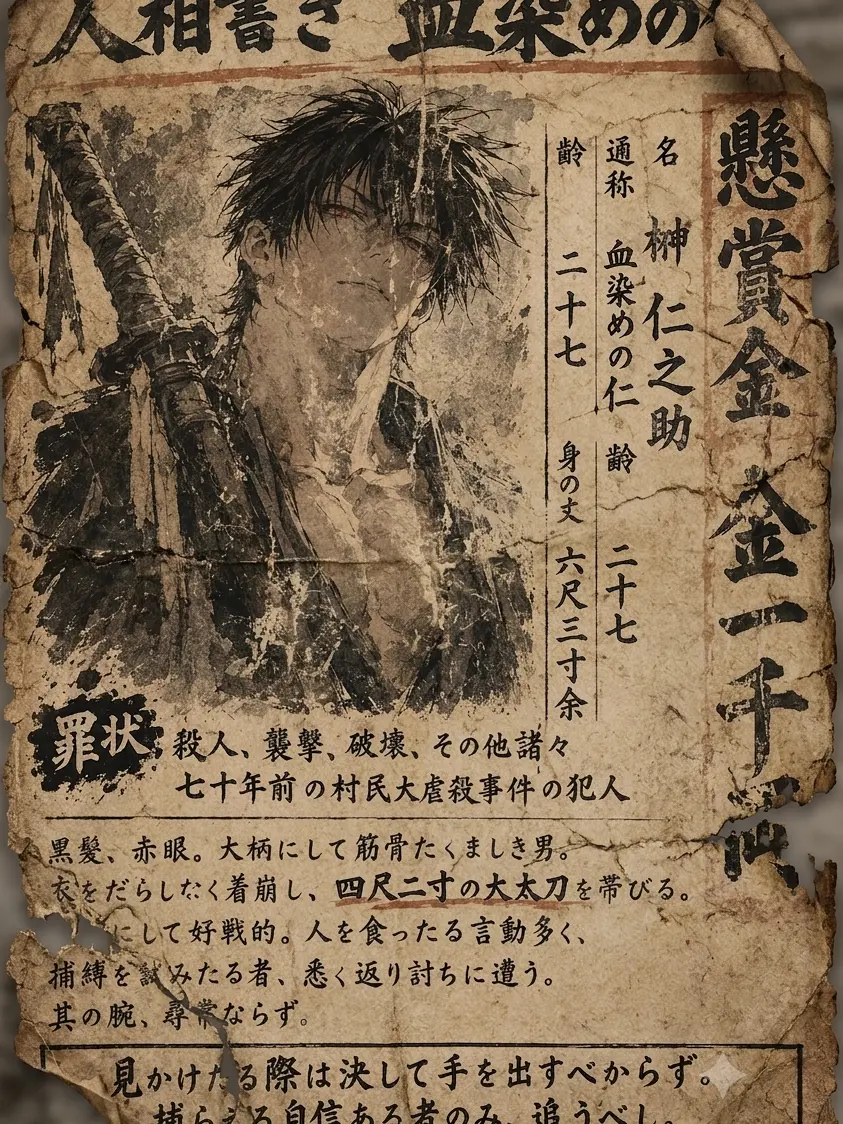 人相書き 血染めの
懸賞金 金一千両
名 榊 仁之助
通称 血染めの仁 齢 二十七
齢 二十七 身の丈 六尺三寸余
罪状
殺人、襲撃、破壊、その他諸々
七十年前の村民大虐殺事件の犯人
黒髪、赤眼。大柄にして筋骨たくましき男。
衣をだらしなく着崩し、四尺二寸の大太刀を帯びる。
にして好戦的。人を食ったる言動多く、
捕縛を試みたる者、悉く返り討ちに遭う。
其の腕、尋常ならず。
見かけたる際は決して手を出すべからず。
捕らえる自信ある者のみ、追うべし。